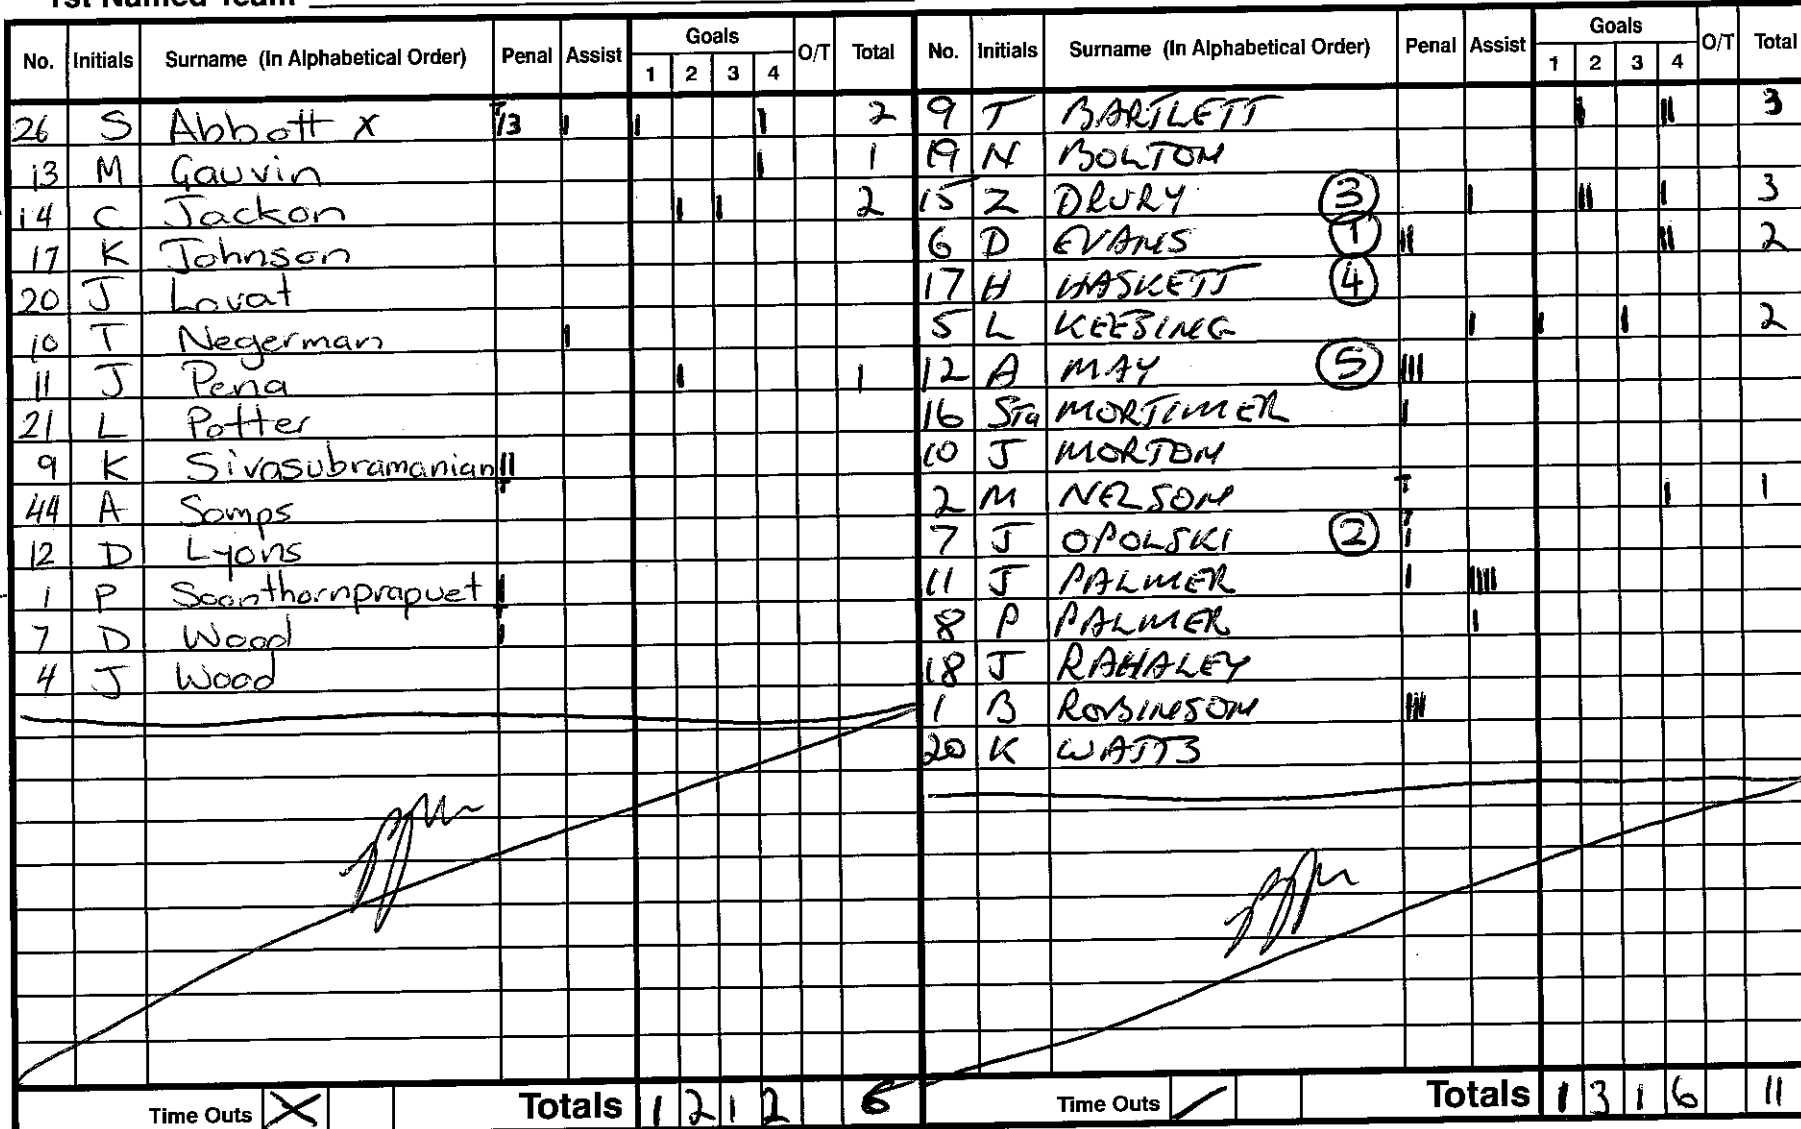 1st Named Team
No. Initials Surname (In Alphabetical Order) Penal Assist Goals 1 2 3 4 O/T Total
26 S Abbott X 13 I I I 2
13 M Gauvin I 1
14 C Jackon I I 2
17 K Johnson
20 J Lovat
10 T Negerman I
11 J Pena I 1
21 L Potter
9 K Sivasubramanian II
44 A Somps
12 D Lyons
1 P Soonthornprapuet I
7 D Wood I
4 J Wood
Time Outs X Totals 1 2 1 2 6
No. Initials Surname (In Alphabetical Order) Penal Assist Goals 1 2 3 4 O/T Total
9 T BARTLETT I II 3
19 N BOLTON
15 Z DRURY 3 I II I 3
6 D EVANS 1 II II 2
17 H HASKETT 4
5 L KEEBING I I I 2
12 A MAY 5 III
16 Sta MORTIMER I
10 J MORTON
2 M NELSON T I 1
7 J OPOLSKI 2 I
11 J PALMER I IIII
8 P PALMER I
18 J RAHALEY
1 B ROBINSON III
20 K WATTS
Time Outs / Totals 1 3 1 6 11